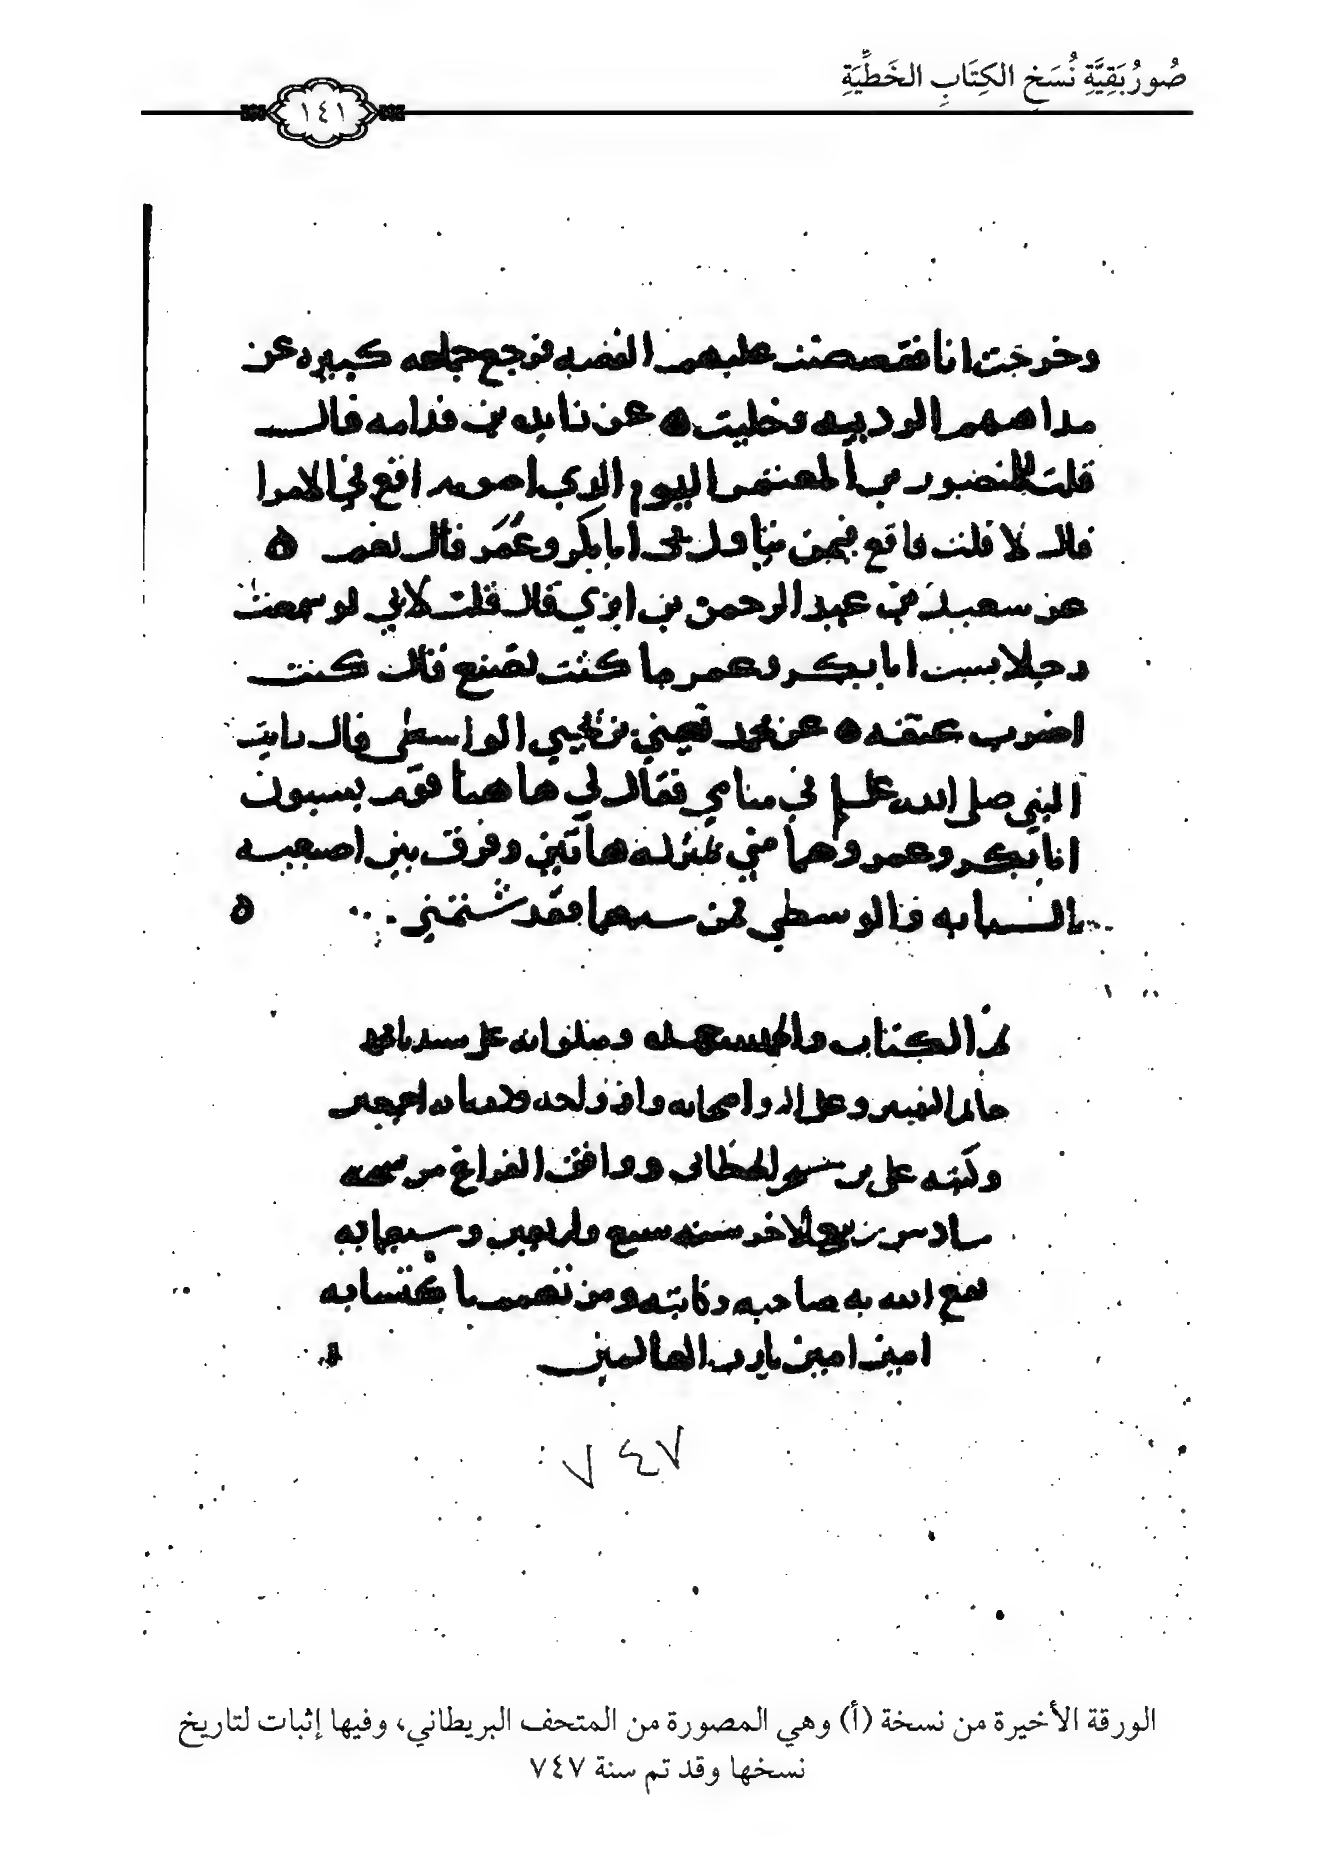 صُورُ بَقِيَّةِ نُسَخِ الكِتَابِ الخَطِّيَةِ
١٤١
وخرجت انا فقصصت عليهم القصه فرجع جماعه كبيره عن
مداهبهم الرديه وخليت ه عن زايده بن قدامه قالــ
قلت للمنصور بن المعتمر اليوم الذي اصومه اقع في الامرا
قال لا قلت فاقع فيمن يتناول ابابكر وعُمَر قال نعم ه
عن سعيد بن عبد الرحمن بن ابزي قال قلت لابي لو سمعت
رجلا يسب ابا بكر وعمر ما كنت تصنع قال كنت
اضرب عنقه ه عن محمد بن يحيي الواسطي قال رايت
النبي صلي الله عليه في منامي فقال لي ها هنا قوم يسبون
ابا بكر وعمر وهما مني بمنزله هاتين وفرق بين اصبعيه
بالسبابه والوسطي فمن سبهما فقد شتمني ه
الكتاب والحمد لله وصلواته على سيدنا محمد
خاتم النبيين وعلى اله واصحابه وازواجه اجمعين
وكتبه على بن ووافق الفراغ من
سادس ربيع الاخر سنه سبع واربعين وسبعمايه
نفع الله به صاحبه وكاتبه ومن
امين امين يا رب العالمين
٧٤٧
الورقة الأخيرة من نسخة (أ) وهي المصورة من المتحف البريطاني، وفيها إثبات لتاريخ
نسخها وقد تم سنة ٧٤٧